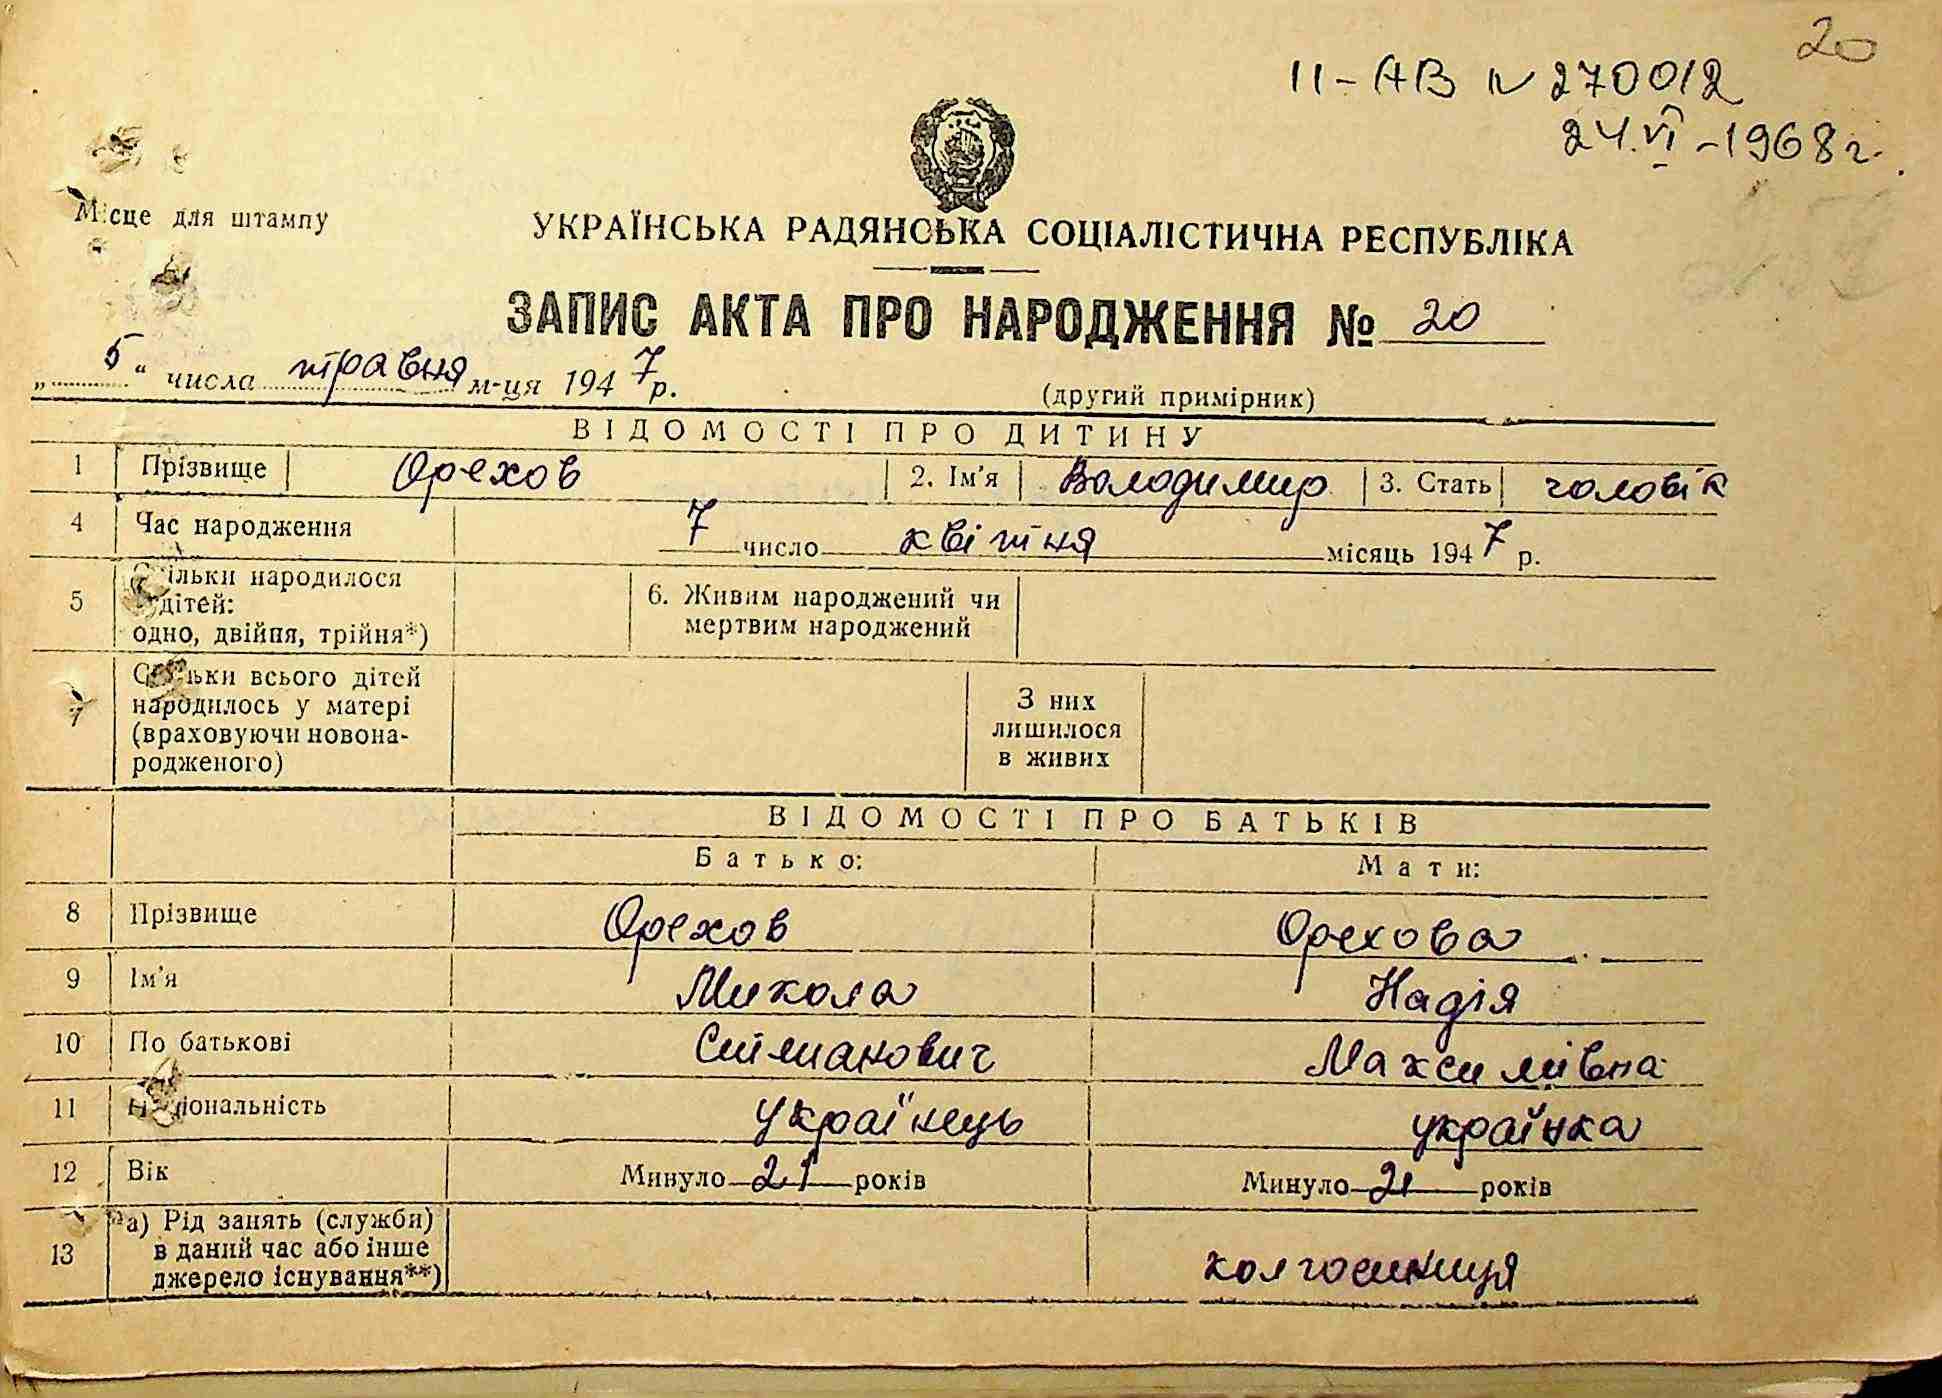 20
II-АВ N 270012
24.VI-1968 г.
Місце для штампу
УКРАЇНСЬКА РАДЯНСЬКА СОЦІАЛІСТИЧНА РЕСПУБЛІКА
ЗАПИС АКТА ПРО НАРОДЖЕННЯ № 20
„5“ числа травня м-ця 1947 р.
(другий примірник)
ВІДОМОСТІ ПРО ДИТИНУ
1 Прізвище Орехов 2. Ім'я Володимир 3. Стать чоловік
4 Час народження 7 число квітня місяць 1947 р.
5 Скільки народилося дітей: одно, двійня, трійня*) 6. Живим народжений чи мертвим народжений
7 Скільки всього дітей народилось у матері (враховуючи новонародженого) З них лишилося в живих
ВІДОМОСТІ ПРО БАТЬКІВ
Батько: Мати:
8 Прізвище Орехов Орехова
9 Ім'я Микола Надія
10 По батькові Максимівна
11 Національність українець українка
12 Вік Минуло 21 років Минуло 21 років
13 а) Рід занять (служби) в даний час або інше джерело існування**) колгоспниця